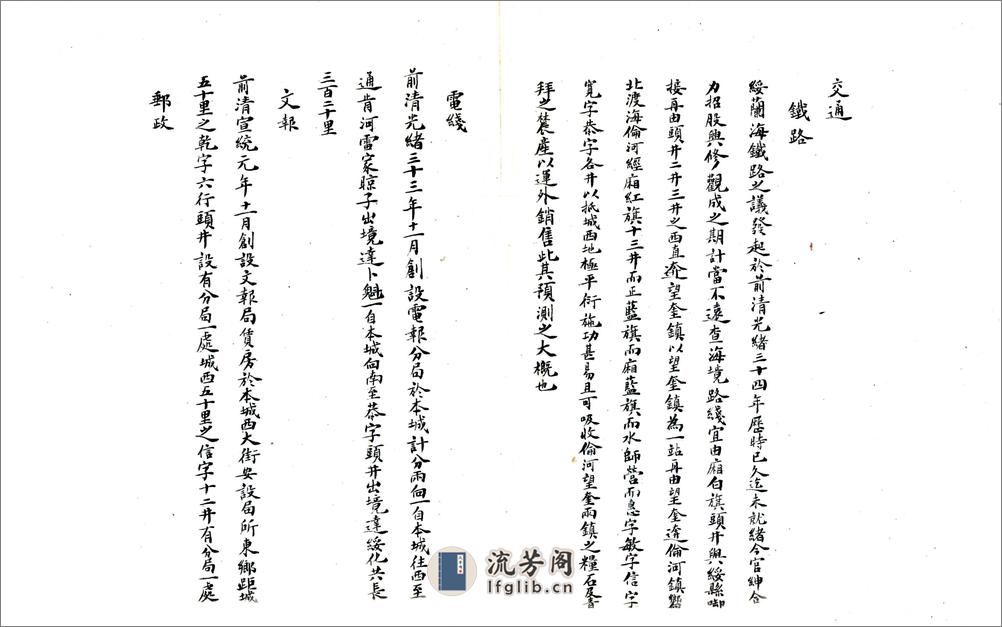 交通
鐵路
綏蘭海鐵路之議發起於前清光緒三十四年歷時已久迄未就緒今官紳合
力招股興修觀成之期計當不遠查海境路綫宜由廂白旗頭井與綏縣啣
接再由頭井二井三井之西直達望奎鎮以望奎鎮為一站再由望奎達倫河鎮
北渡海倫河經廂紅旗十三井而正藍旗而廂藍旗而水師營而惠字敏字信字
寬字恭字各井以抵城西地極平衍施功甚易且可吸收倫河望奎兩鎮之糧石及青
拜之農產以運外銷售此其預測之大概也
電綫
前清光緒三十三年十一月創設電報分局於本城計分兩向一自本城往西至
通肯河雷家晾子出境達卜魁一自本城向南至恭字頭井出境達綏化共長
三百二十里
文報
前清宣統元年十一月創設文報局賃房於本城西大街安設局所東鄉距城
五十里之乾字六行頭井設有分局一處城西五十里之信字十二井有分局一處
郵政
流芳阁
lfglib.cn